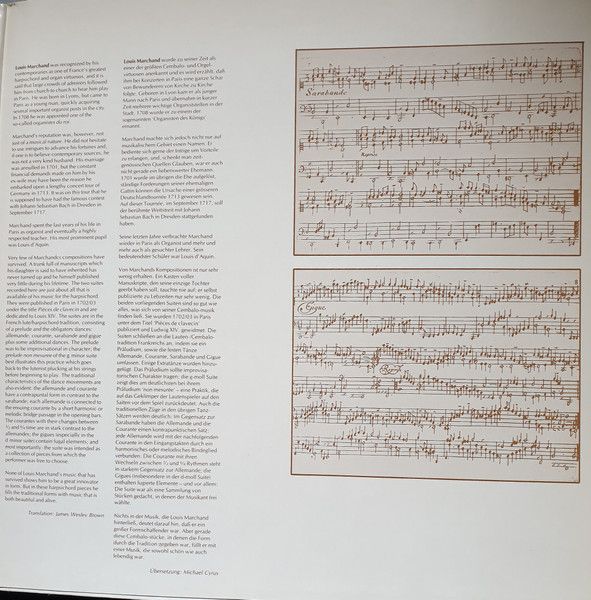 Louis Marchand was recognized by his
contemporaries as one of France's greatest
harpsichord and organ virtuosos, and it is
said that large crowds of admirers followed
him from church to church to hear him play
in Paris. He was born in Lyons, but came to
Paris as a young man, quickly acquiring
several important organist posts in the city.
In 1708 he was appointed one of the
so-called organistes du roi.
Marchand's reputation was, however, not
just of a musical nature. He did not hesitate
to use intrigues to advance his fortunes and,
if one is to believe contemporary sources, he
was not a very kind husband. His marriage
was annulled in 1701, but the constant
financial demands made on him by his
ex-wife may have been the reason he
embarked upon a lengthy concert tour of
Germany in 1713. It was on this tour that he
is supposed to have had the famous contest
with Johann Sebastian Bach in Dresden in
September 1717.
Marchand spent the last years of his life in
Paris as organist and eventually a highly
respected teacher. His most prominent pupil
was Louis d'Aquin.
Very few of Marchand's compositions have
survived. A trunk full of manuscripts which
his daughter is said to have inherited has
never turned up and he himself published
very little during his lifetime. The two suites
recorded here are just about all that is
available of his music for the harpsichord.
They were published in Paris in 1702/03
under the title Pièces de clavecin and are
dedicated to Louis XIV. The suites are in the
French lute/harpsichord tradition, consisting
of a prelude and the obligatory dances:
allemande, courante, sarabande and gigue
plus some additional dances. The prelude
was to be improvisational in character; the
prelude non mesurée of the g minor suite
best illustrates this practice which goes
back to the lutenist plucking at his strings
before beginning to play. The traditional
characteristics of the dance movements are
also evident: the allemande and courante
have a contrapuntal form in contrast to the
sarabande; each allemande is connected to
the ensuing courante by a short harmonic or
melodic bridge passage in the opening bars.
The courantes with their changes between
time are in stark contrast to the
allemandes; the gigues (especially in the
d minor suite) contain fugal elements; and
most importantly: the suite was intended as
a collection of pieces from which the
performer was free to choose.
None of Louis Marchand's music that has
survived shows him to be a great innovator
in form. But in these harpsichord pieces he
fills the traditional forms with music that is
both beautiful and alive.
Translation: James Wesley Brown
Louis Marchand wurde zu seiner Zeit als
einer der größten Cembalo- und Orgel-
virtuosen anerkannt und es wird erzählt, daß
ihm bei Konzerten in Paris eine ganze Schar
von Bewunderern von Kirche zu Kirche
folgte. Geboren in Lyon kam er als junger
Mann nach Paris und übernahm in kurzer
Zeit mehrere wichtige Organistenstellen in der
Stadt. 1708 wurde er zu einem der
sogenannten 'Organisten des Königs'
ernannt.
Marchand machte sich jedoch nicht nur auf
musikalischem Gebiet einen Namen. Er
bediente sich gerne der Intrige um Vorteile
zu erlangen, und, schenkt man zeit-
genössischen Quellen Glauben, war er auch
nicht gerade ein liebenswerter Ehemann.
1701 wurde im übrigen die Ehe aufgelöst,
ständige Forderungen seiner ehemaligen
Gattin können die Ursache einer grösseren
Deutschlandtournée 1713 gewesen sein.
Auf dieser Tournée, im September 1717, soll
der berühmte Wettstreit mit Johann
Sebastian Bach in Dresden stattgefunden
haben.
Seine letzten Jahre verbrachte Marchand
wieder in Paris als Organist und mehr und
mehr auch als gesuchter Lehrer. Sein
bedeutendster Schüler war Louis d'Aquin.
Von Marchands Kompositionen ist nur sehr
wenig erhalten. Ein Kasten voller
Manuskripte, den seine einzige Tochter
geerbt haben soll, tauchte nie auf, er selbst
publizierte zu Lebzeiten nur sehr wenig. Die
beiden vorliegenden Suiten sind so gut wie
alles, was sich von seiner Cembalo-musik
finden ließ. Sie wurden 1702/03 in Paris
unter dem Titel 'Pièces de clavecin'
publiziert und Ludwig XIV. gewidmet. Die
Suiten schließen an die Lauten-/Cembalo-
tradition Frankreichs an, indem sie ein
Präludium, sowie die festen Tänze
Allemande, Courante, Sarabande und Gigue
umfassen. Einige Extratänze wurden hinzu-
gefügt. Das Präludium sollte improvisa-
torischen Charakter tragen; die g-moll Suite
zeigt dies am deutlichsten bei ihrem
Präludium 'non mesurée' – eine Praktik, die
auf das Geklimper der Lautenspieler auf den
Saiten vor dem Spiel zurückdeutet. Auch die
traditionellen Züge in den übrigen Tanz-
Sätzen werden deutlich: im Gegensatz zur
Sarabande haben die Allemande und die
Courante einen kontrapunktischen Satz;
jede Allemande wird mit der nachfolgenden
Courante in den Eingangstakten durch ein
harmonisches oder melodisches Bindeglied
verbunden. Die Courante mit ihren
Wechseln zwischen Rythmen steht
in starkem Gegensatz zur Allemande; die
Gigues (insbesondere in der d-moll Suite)
enthalten fugierte Elemente – und vor allem:
Die Suite war als eine Sammlung von
Stücken gedacht, in denen der Musikant frei
wählte.
Nichts in der Musik, die Louis Marchand
hinterließ, deutet darauf hin, daß er ein
großer Formschaffender war. Aber gerade
diese Cembalo-stücke, in denen die Form
durch die Tradition gegeben war, füllt er mit
einer Musik, die sowohl schön wie auch
lebendig war.
Übersetzung: Michael Cyrus
Sarabande
Reprise
Gigue